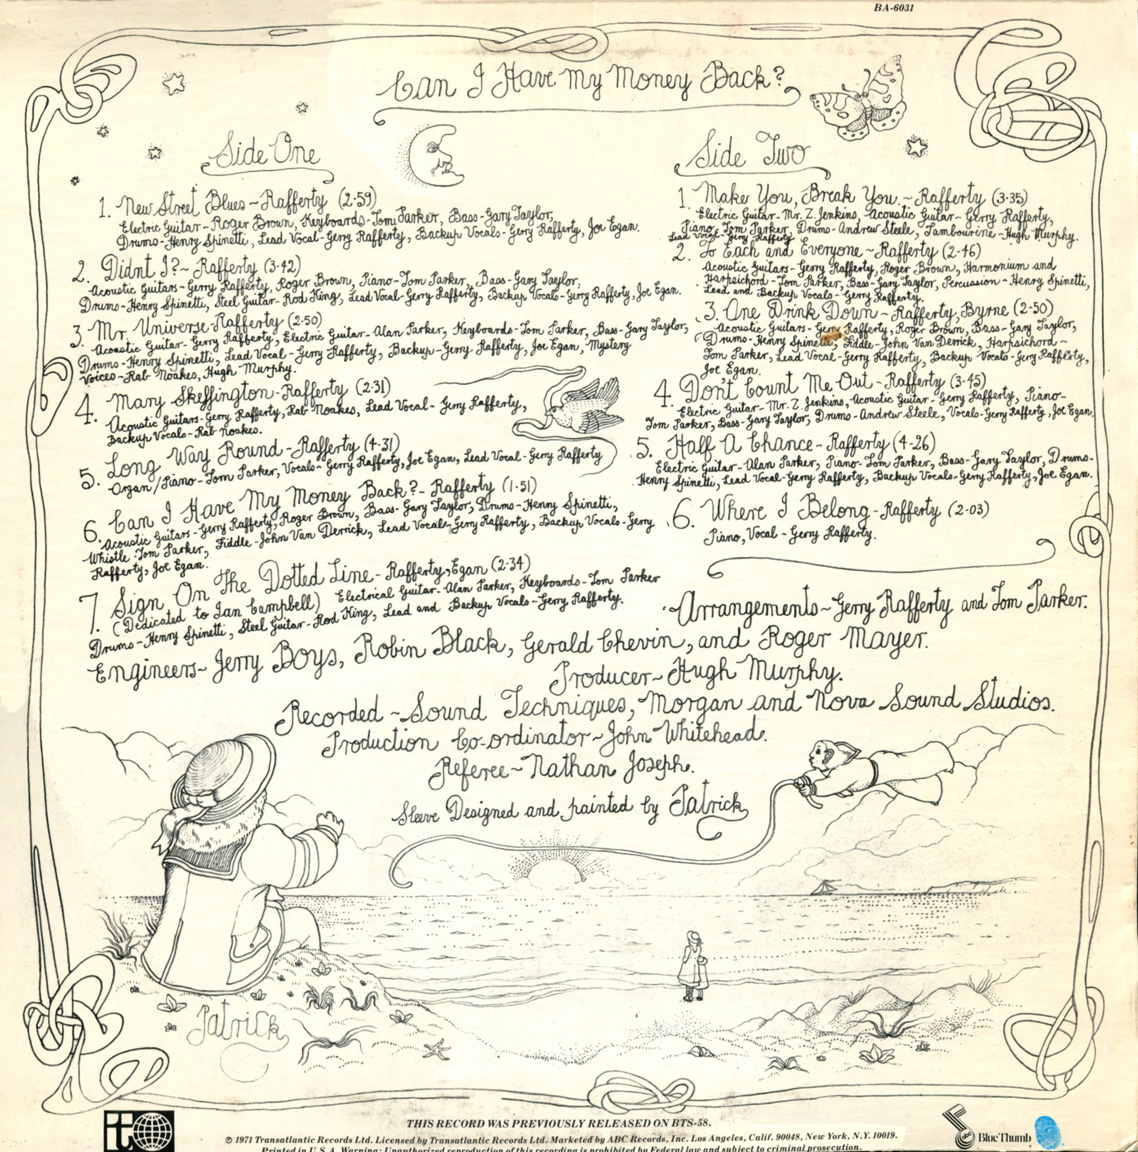 BA-6031
Can I Have My Money Back?
Side One
1. New Street Blues ~ Rafferty (2·59)
Electric Guitar - Roger Brown, Keyboards - Tom Parker, Bass - Gary Taylor,
Drums - Henry Spinetti, Lead Vocal - Gerry Rafferty, Backup Vocals - Gerry Rafferty, Joe Egan.
2. Didnt I? ~ Rafferty (3·42)
Acoustic Guitars - Gerry Rafferty, Roger Brown, Piano - Tom Parker, Bass - Gary Taylor,
Drums - Henry Spinetti, Steel Guitar - Rod King, Lead Vocal - Gerry Rafferty, Backup Vocals - Gerry Rafferty, Joe Egan.
3. Mr. Universe - Rafferty (2·50)
Acoustic Guitar - Gerry Rafferty, Electric Guitar - Alan Parker, Keyboards - Tom Parker, Bass - Gary Taylor,
Drums - Henry Spinetti, Lead Vocal - Gerry Rafferty, Backup - Gerry Rafferty, Joe Egan, Mystery
Voices - Rab Noakes, Hugh Murphy.
4. Mary Skeffington - Rafferty (2·31)
Acoustic Guitars - Gerry Rafferty, Rab Noakes, Lead Vocal - Gerry Rafferty,
Backup Vocals - Rab Noakes.
5. Long Way Round - Rafferty (4·31)
Organ/Piano - Tom Parker, Vocals - Gerry Rafferty, Joe Egan, Lead Vocal - Gerry Rafferty
6. Can I Have My Money Back? - Rafferty (1·51)
Acoustic Guitars - Gerry Rafferty, Roger Brown, Bass - Gary Taylor, Drums - Henry Spinetti,
Whistle - Tom Parker, Fiddle - John Van Derrick, Lead Vocals - Gerry Rafferty, Backup Vocals - Gerry
Rafferty, Joe Egan.
7. Sign On The Dotted Line - Rafferty, Egan (2·34)
(Dedicated to Ian Campbell) Electrical Guitar - Alan Parker, Keyboards - Tom Parker
Drums - Henry Spinetti, Steel Guitar - Rod King, Lead and Backup Vocals - Gerry Rafferty.
Side Two
1. Make You, Break You. ~ Rafferty (3·35)
Electric Guitar - Mr. Z. Jenkins, Acoustic Guitar - Gerry Rafferty,
Piano, Tom Parker, Drums - Andrew Steele, Tambourine - Hugh Murphy.
Lead Vocal - Gerry Rafferty
2. To Each and Everyone ~ Rafferty (2·46)
Acoustic Guitars - Gerry Rafferty, Roger Brown, Harmonium and
Harpsichord - Tom Parker, Bass - Gary Taylor, Percussion - Henry Spinetti,
Lead and Backup Vocals - Gerry Rafferty.
3. One Drink Down - Rafferty, Byrne (2·50)
Acoustic Guitars - Gerry Rafferty, Roger Brown, Bass - Gary Taylor,
Drums - Henry Spinetti, Fiddle - John Van Derrick, Harpsichord -
Tom Parker, Lead Vocal - Gerry Rafferty, Backup Vocals - Gerry Rafferty,
Joe Egan.
4. Don't Count Me Out - Rafferty (3·45)
Electric Guitar - Mr. Z. Jenkins, Acoustic Guitar - Gerry Rafferty, Piano -
Tom Parker, Bass - Gary Taylor, Drums - Andrew Steele, Vocals - Gerry Rafferty, Joe Egan.
5. Half A Chance - Rafferty (4-26)
Electric Guitar - Alan Parker, Piano - Tom Parker, Bass - Gary Taylor, Drums -
Henry Spinetti, Lead Vocal - Gerry Rafferty, Backup Vocals - Gerry Rafferty, Joe Egan.
6. Where I Belong - Rafferty (2-03)
Piano, Vocal - Gerry Rafferty.
Arrangements ~ Gerry Rafferty and Tom Parker.
Engineers ~ Jerry Boys, Robin Black, Gerald Chevin, and Roger Mayer.
Producer ~ Hugh Murphy.
Recorded ~ Sound Techniques, Morgan and Nova Sound Studios.
Production Co-ordinator ~ John Whitehead.
Referee ~ Nathan Joseph.
Sleeve Designed and painted by Patrick
Patrick
it
THIS RECORD WAS PREVIOUSLY RELEASED ON BTS-58.
℗ 1971 Transatlantic Records Ltd. Licensed by Transatlantic Records Ltd. Marketed by ABC Records, Inc. Los Angeles, Calif. 90048, New York, N.Y. 10019.
Printed in U.S.A. Warning: Unauthorized reproduction of this recording is prohibited by Federal law and subject to criminal prosecution.
abc
Blue Thumb